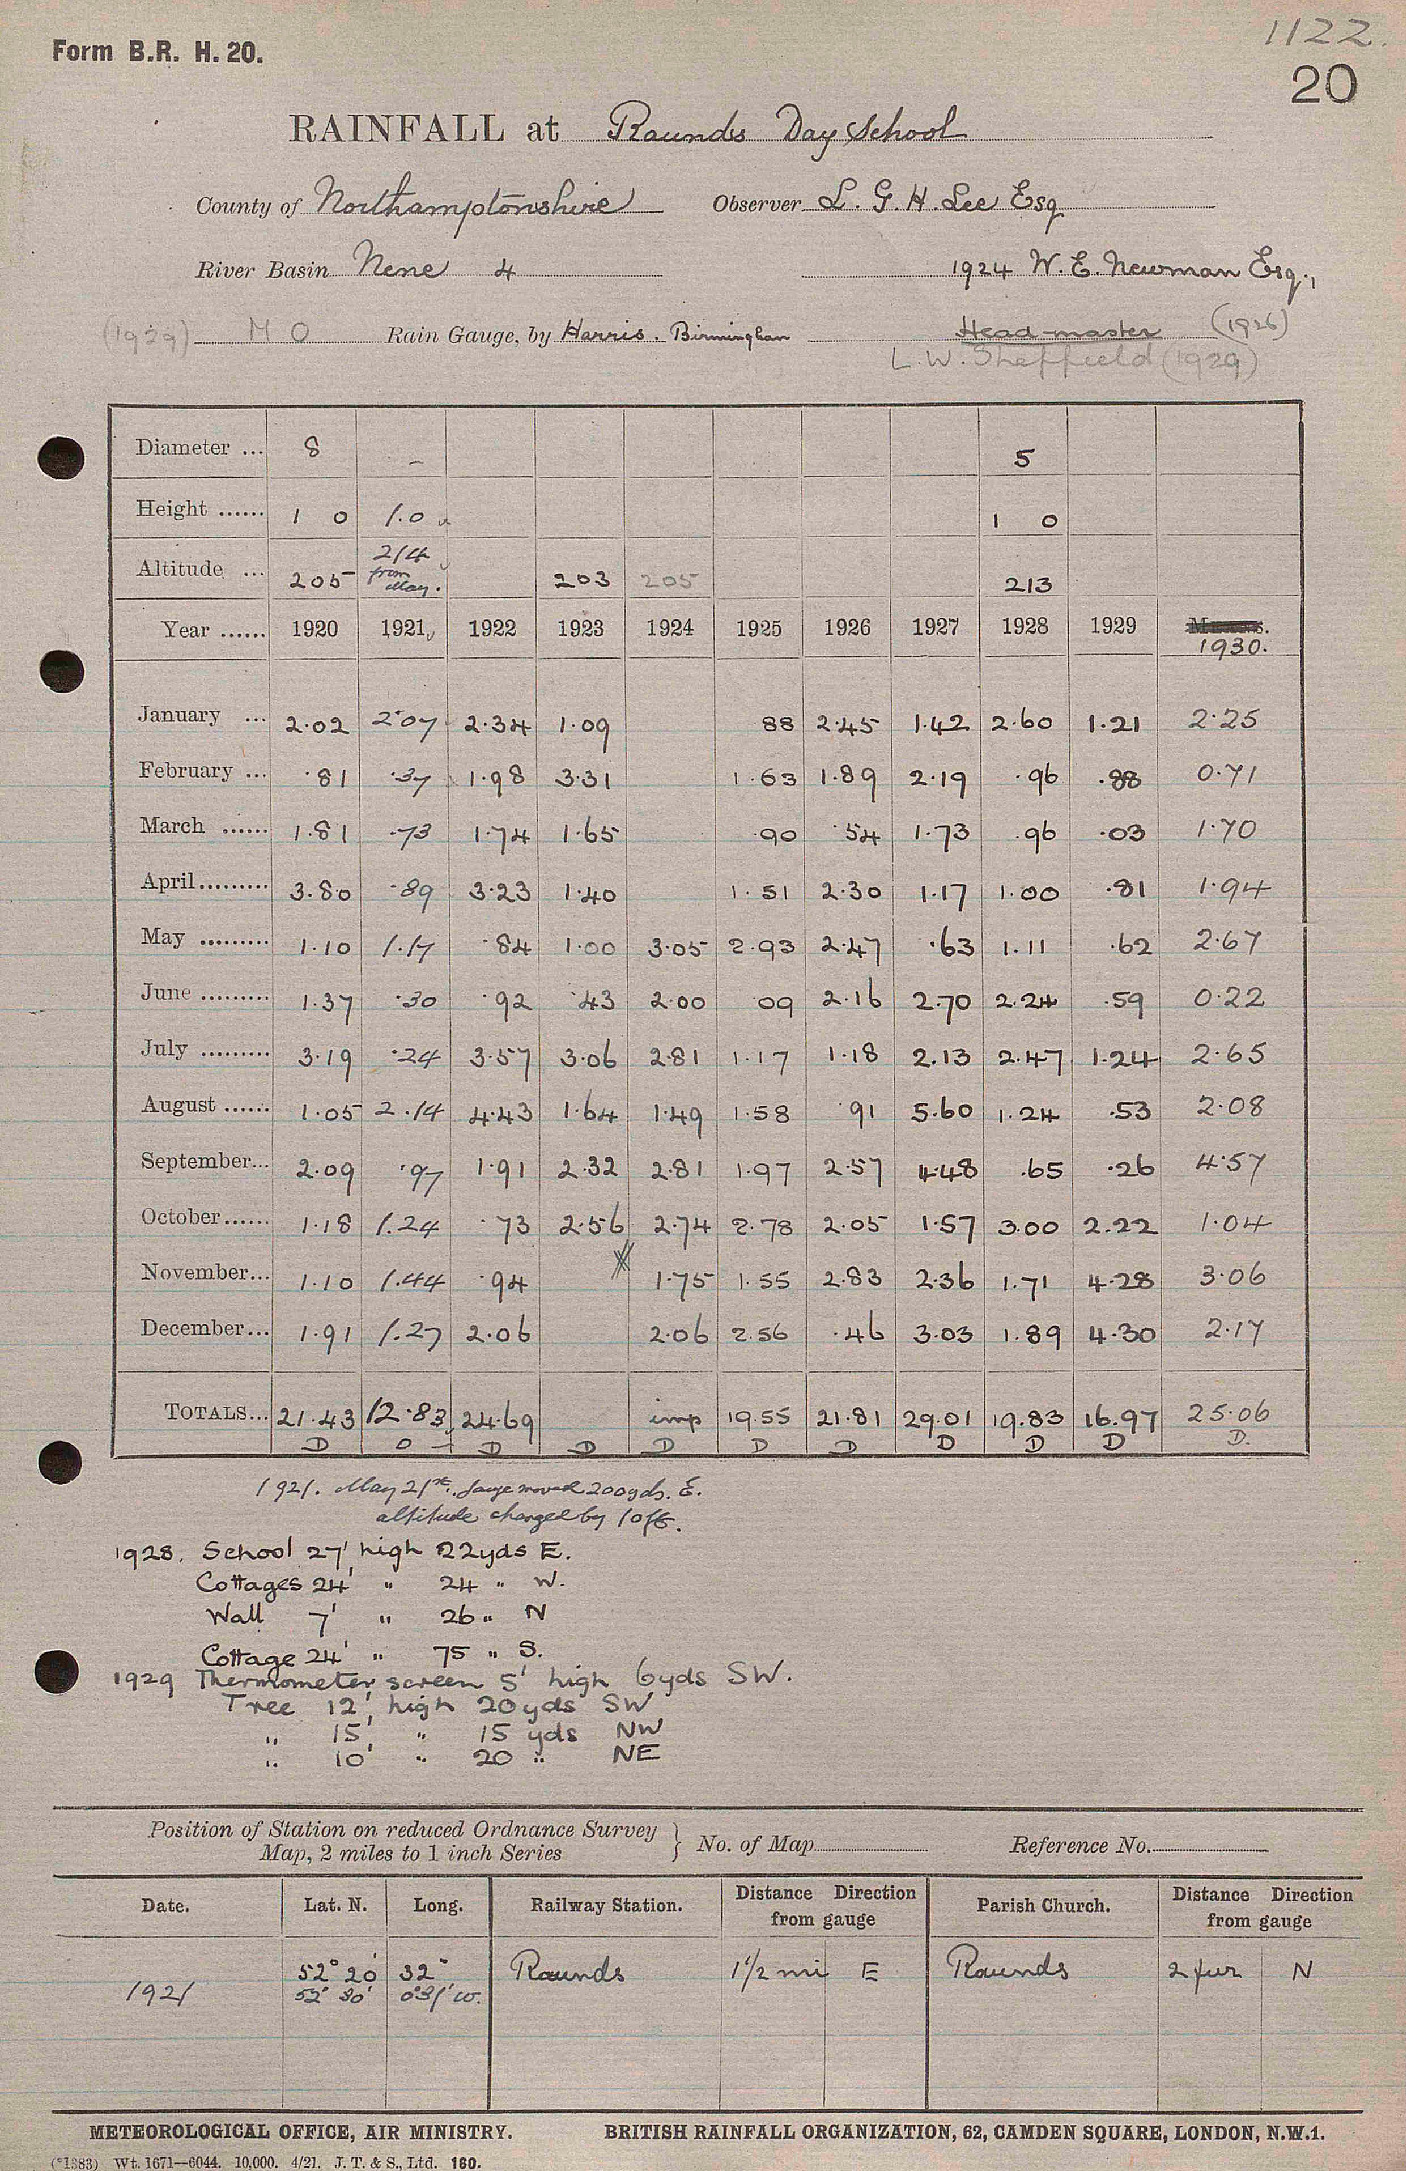 1122.
Form B.R. H. 20.
20
RAINFALL at Raunds Day School
County of Northamptonshire Observer L. G. H. Lee Esq
River Basin Nene 4 1924 W. E. Newman Esq.,
(1929) M O Rain Gauge, by Harris. Birmingham Head-master (1926)
L. W. Sheffield (1929)
Diameter ... 8 - 5
Height ...... 1 0 1.0 1 0
Altitude ... 205 214 from May. 203 205 213
Year ...... 1920 1921 1922 1923 1924 1925 1926 1927 1928 1929 1930.
January ... 2.02 2.07 2.34 1.09 88 2.45 1.42 2.60 1.21 2.25
February ... .81 .37 1.98 3.31 1.63 1.89 2.19 .96 .88 0.71
March ...... 1.81 .73 1.74 1.65 90 .54 1.73 .96 .03 1.70
April......... 3.80 .89 3.23 1.40 1.51 2.30 1.17 1.00 .81 1.94
May ......... 1.10 1.17 .84 1.00 3.05 2.93 2.47 .63 1.11 .62 2.67
June ......... 1.37 .30 .92 .43 2.00 09 2.16 2.70 2.24 .59 0.22
July ......... 3.19 .24 3.57 3.06 2.81 1.17 1.18 2.13 2.47 1.24 2.65
August ...... 1.05 2.14 4.43 1.64 1.49 1.58 .91 5.60 1.24 .53 2.08
September... 2.09 .97 1.91 2.32 2.81 1.97 2.57 4.48 .65 .26 4.57
October...... 1.18 1.24 .73 2.56 2.74 2.78 2.05 1.57 3.00 2.22 1.04
November... 1.10 1.44 .94 1.75 1.55 2.83 2.36 1.71 4.28 3.06
December... 1.91 1.27 2.06 2.06 2.56 .46 3.03 1.89 4.30 2.17
TOTALS... 21.43 12.83 24.69 imp 19.55 21.81 29.01 19.83 16.97 25.06
D D D D D D D D D D D.
1921. May 21st. Gauge moved 200yds. E.
altitude changed by 10ft.
1928. School 27' high 22yds E.
Cottages 24' " 24 " W.
Wall 7' " 26 " N
Cottage 24' " 75 " S.
1929 Thermometer screen 5' high 6yds SW.
Tree 12' high 20yds SW
" 15' " 15 yds NW
" 10' " 20 " NE
Position of Station on reduced Ordnance Survey
Map, 2 miles to 1 inch Series } No. of Map Reference No.
Date. Lat. N. Long. Railway Station. Distance Direction from gauge Parish Church. Distance Direction from gauge
52° 20' 32" Raunds 1 1/2 mi E Raunds 2 fur N
1921 52° 20' 0°31' W.
METEOROLOGICAL OFFICE, AIR MINISTRY. BRITISH RAINFALL ORGANIZATION, 62, CAMDEN SQUARE, LONDON, N.W.1.
(*1383) Wt. 1671—6044. 10,000. 4/21. J. T. & S., Ltd. 160.